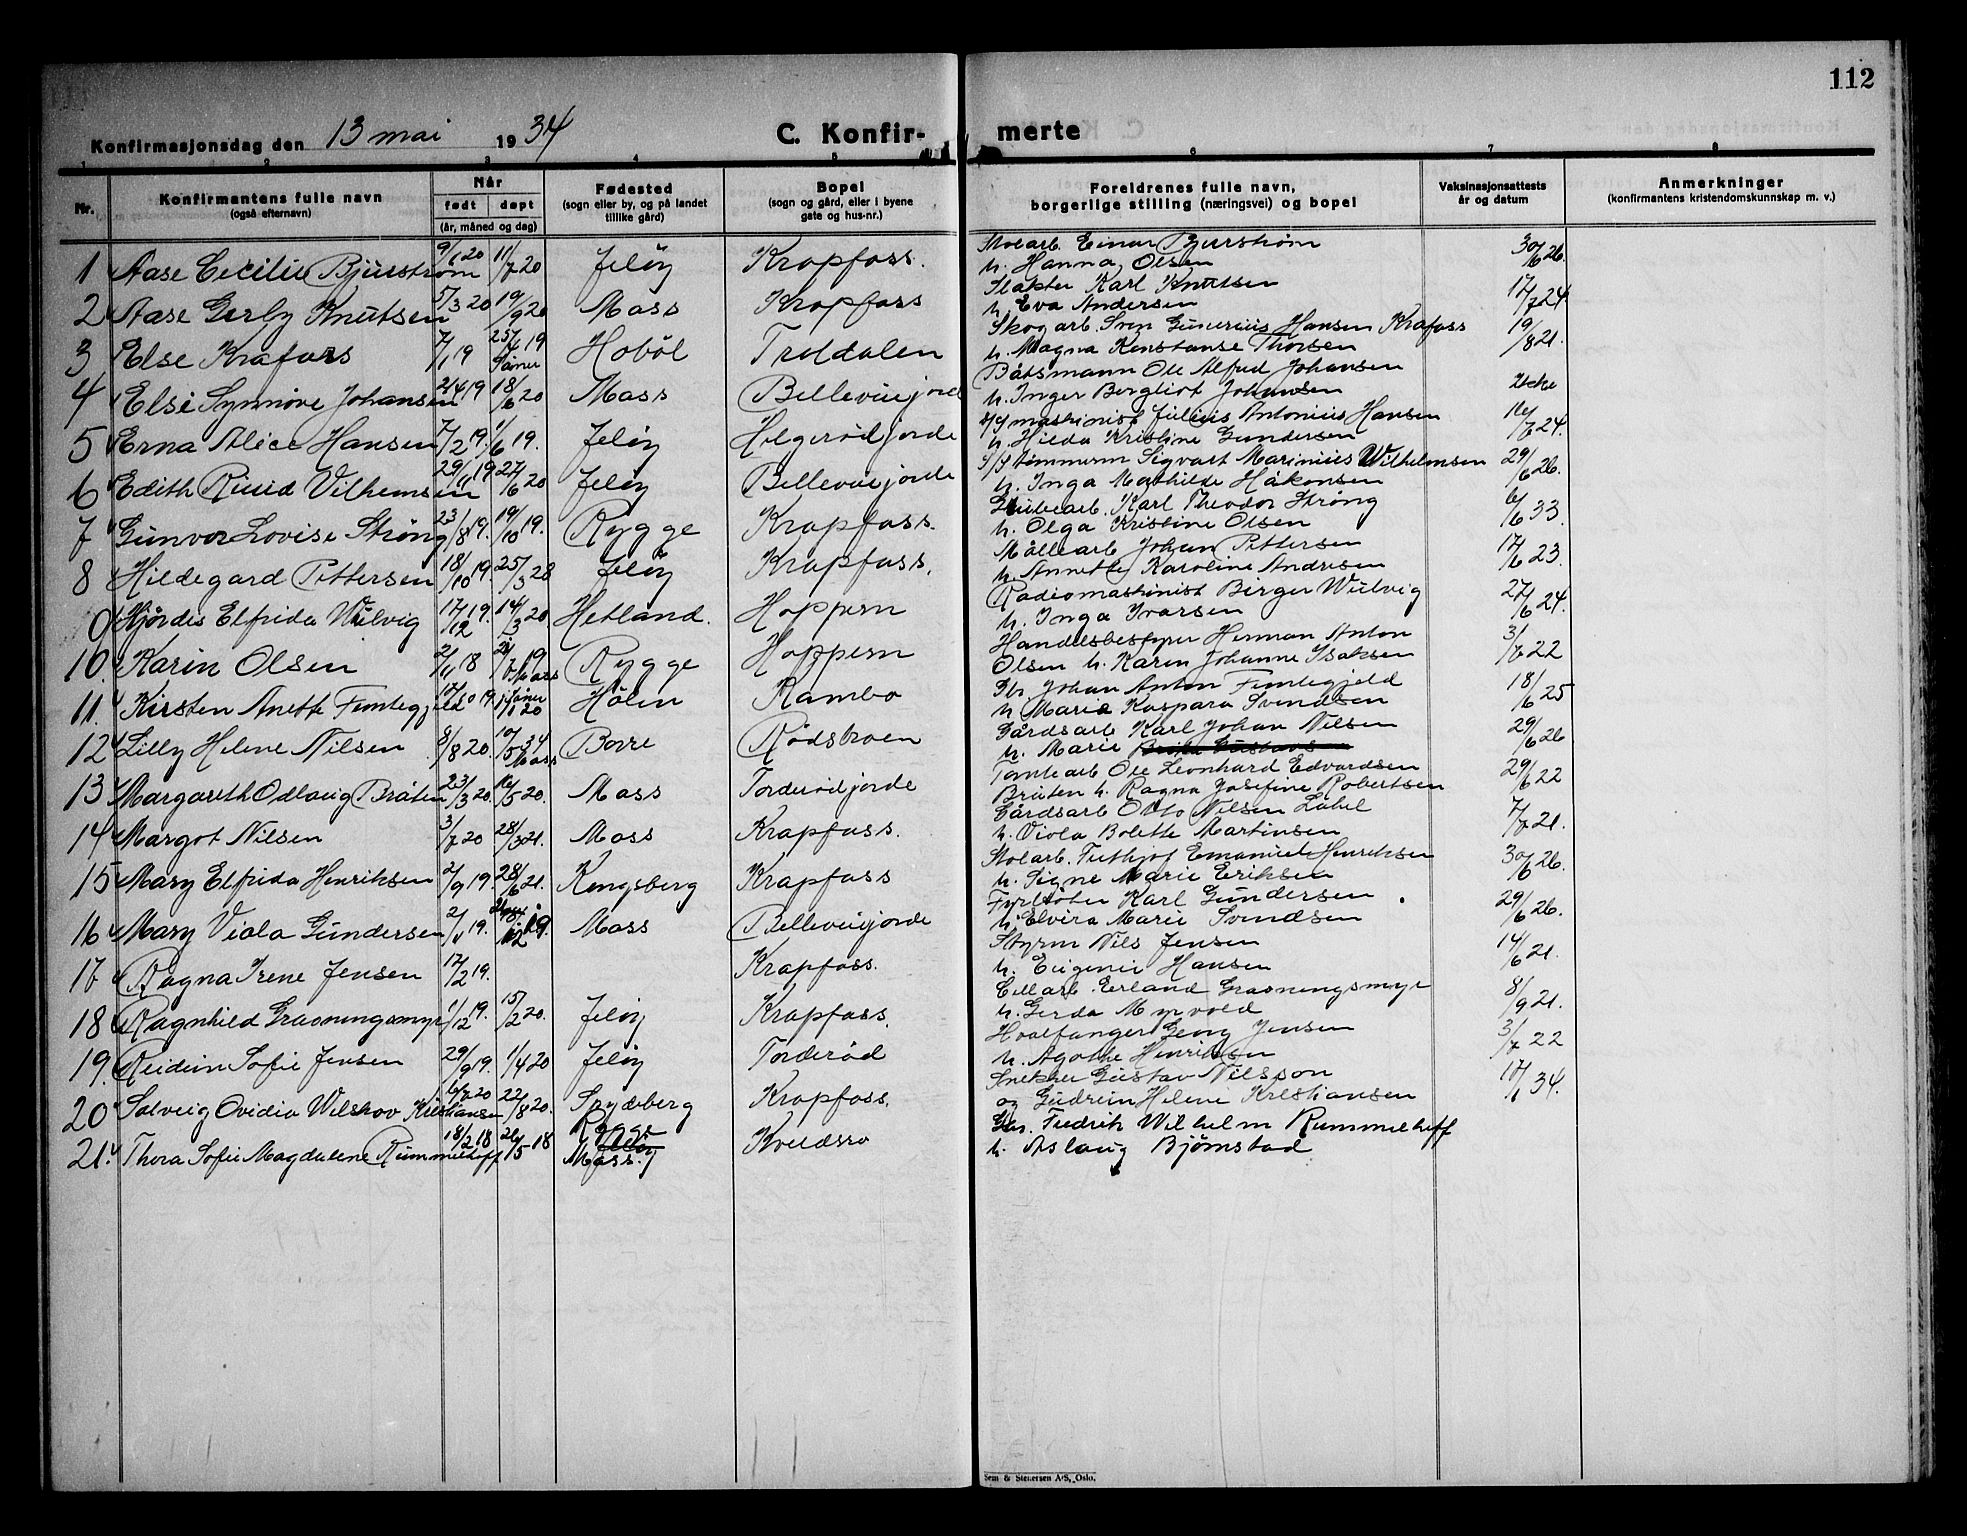 112
Konfirmasjonsdag den 13 mai 1934 C. Konfir- merte
1 2 3 4 5 6 7 8
Nr. Konfirmantens fulle navn (også efternavn) Når født døpt (år, måned og dag) Fødested (sogn eller by, og på landet tillike gård) Bopel (sogn og gård, eller i byene gate og hus-nr.) Foreldrenes fulle navn, borgerlige stilling (næringsvei) og bopel Vaksinasjonsattests år og datum Anmerkninger (konfirmantens kristendomskunnskap m. v.)
1 Aase Cecilie Bjurstrøm 9/1 20 11/7 20 Jeløy Krapfoss. Stolarb. Einar Bjurstrøm 30/6 26.
h. Hanna Olsen
2 Aase Gerby Knutsen 5/3 20 19/9 20 Moss Krapfoss Slakter Karl Knutsen 17/7 24
h. Eva Andersen
3 Else Krafoss 7/1 19 25/6 19 Såner Hobøl Troldalen Skogarb. Sven Gunerius Hansen Krafoss 19/8 21.
h. Magna Konstanse Thorsen
4 Else Synnøve Johansen 21/4 19 18/6 20 Moss Bellevuejorde Båtsmann Ole Alfred Johansen Ikke
h. Inger Bergliot Johansen
5 Erna Alice Hansen 7/2 19. 1/6 19. Jeløy Helgerødjorde maskinist Julius Antonius Hansen 16/7 24.
h. Hilda Kristine Gundersen
6 Edith Ruud Vilhemsen 29/11 19 27/6 20 Jeløy Bellevuejorde tømmerm Sigvart Marinius Wilhelmsen 29/6 26.
h. Inga Mathilde Håkonsen
7 Gunvor Lovise Strøng 23/8 19. 19/10 19. Rygge Krapfoss. Karl Theodor Strøng 6/6 33.
h. Olga Kristine Olsen
8 Hildegard Pettersen 18/10 19. 25/3 28 Jeløy Krapfoss. Møllearb Johan Pettersen 17/6 23.
h. Annette Karoline Andresen
9 Hjördis Elfrida Wulvig 17/12 19. 14/3 20 Hetland. Hoppern Radiomaskinist Birger Wulvig 27/6 24.
h. Inga Ivarsen
10. Karin Olsen 2/11 18 7 19 Moss Rygge Hoppern Handelsbestyrer Herman Anton 3/7 22
Olsen h. Karen Johanne Isaksen
11. Kirsten Anette Fimtegjeld 17/10 19. Såner 1/1 20 Hölen Kambo Johan Anton Fimtegjeld 18/6 25
h Marie Kaspara Svendsen
12 Lilly Helene Nilsen 8/8 20. 10/5 34 Moss Borre Rødsbroen Gårdsarb Karl Johan Nilsen 29/6 26
h. Marie
13 Margareth Odlaug Bråten 23/3 20. 16/5 20. Moss Torderødjorde Tomtearb Ole Leonhard Edvardsen 29/6 22
Bråten h. Ragna Josefine Robertsen
14 Margot Nilsen 3/7 20 28/3 21. Moss Krapfoss. Gårdsarb Otto Nilsen Låhel 7/7 21.
h. Viola Bolette Martinsen
15 Mary Elfrida Henriksen 2/9 19. 28/6 21. Kongsberg Krapfoss Stolarb. Frithjof Emanuel Henriksen 30/6 26.
h. Signe Marie Eriksen
16 Mary Viola Gundersen 2/11 19. 12 19. Moss Bellevuejorde Fyrbøter Karl Gundersen 29/6 26.
h. Elvira Marie Svendsen
17 Ragna Irene Jensen 17/2 19. Krapfoss. Styrm Nils Jensen 14/6 21.
h. Eugenie Hansen
18 Ragnhild Grasningsmyr 1/12 19. 15/2 20. Jeløy Krapfoss. Cellarb. Erland Grasningsmyr 8/9 21.
h. Gerda Myrvold
19. Reidun Sofie Jensen 29/9 19. 1/4 20 Jeløy Torderød Hvalfanger Georg Jensen 3/7 22
h. Agathe Henriksen
20 Solveig Ovidia Wilskov Kristiansen 16/7 20 22/8 20. Spydeberg Krapfoss. Snekker Gustav Nilsson 17/1 34.
og Gudrun Helene Kristiansen
21. Thora Sofie Magdalene Rummelhoff 18/2 18 26/5 18 Rygge Jeløy Moss. Kveldsro Fredrik Wilhelm Rummelhoff
h. Aslaug Bjørnstad
Sem & Stenersen A/S, Oslo.